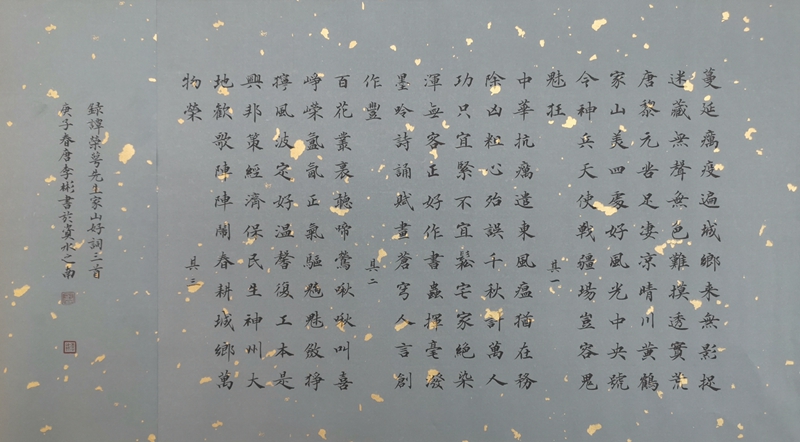 蔓延癘疫遍城鄉来無影捉
迷藏無聲無色難摸透實荒
唐黎元足凄凉晴川黄鶴
家山美四處好風光中央號
令神兵天使戰疆場豈容鬼
魅狂 其一
中華抗癘遣東風瘟猶在務
除凶松心殆誤千秋計萬人
功只宜緊不宜鬆宅家絶染
渾無客正好作書蟲揮毫潑
墨吟詩誦賦畫蒼穹人言創
作豐 其二
百花叢裏聽啼鶯啾啾叫喜
崢嶸氤氲正氣驅魑魅斂猙
獰風波定好温馨復工本是
興邦策經濟保民生神州大
地歡歌陣陣鬧春耕城鄉萬
物榮 其三
錄譚榮萼先生家山好詞三首
庚子春唐李彬書於水之南